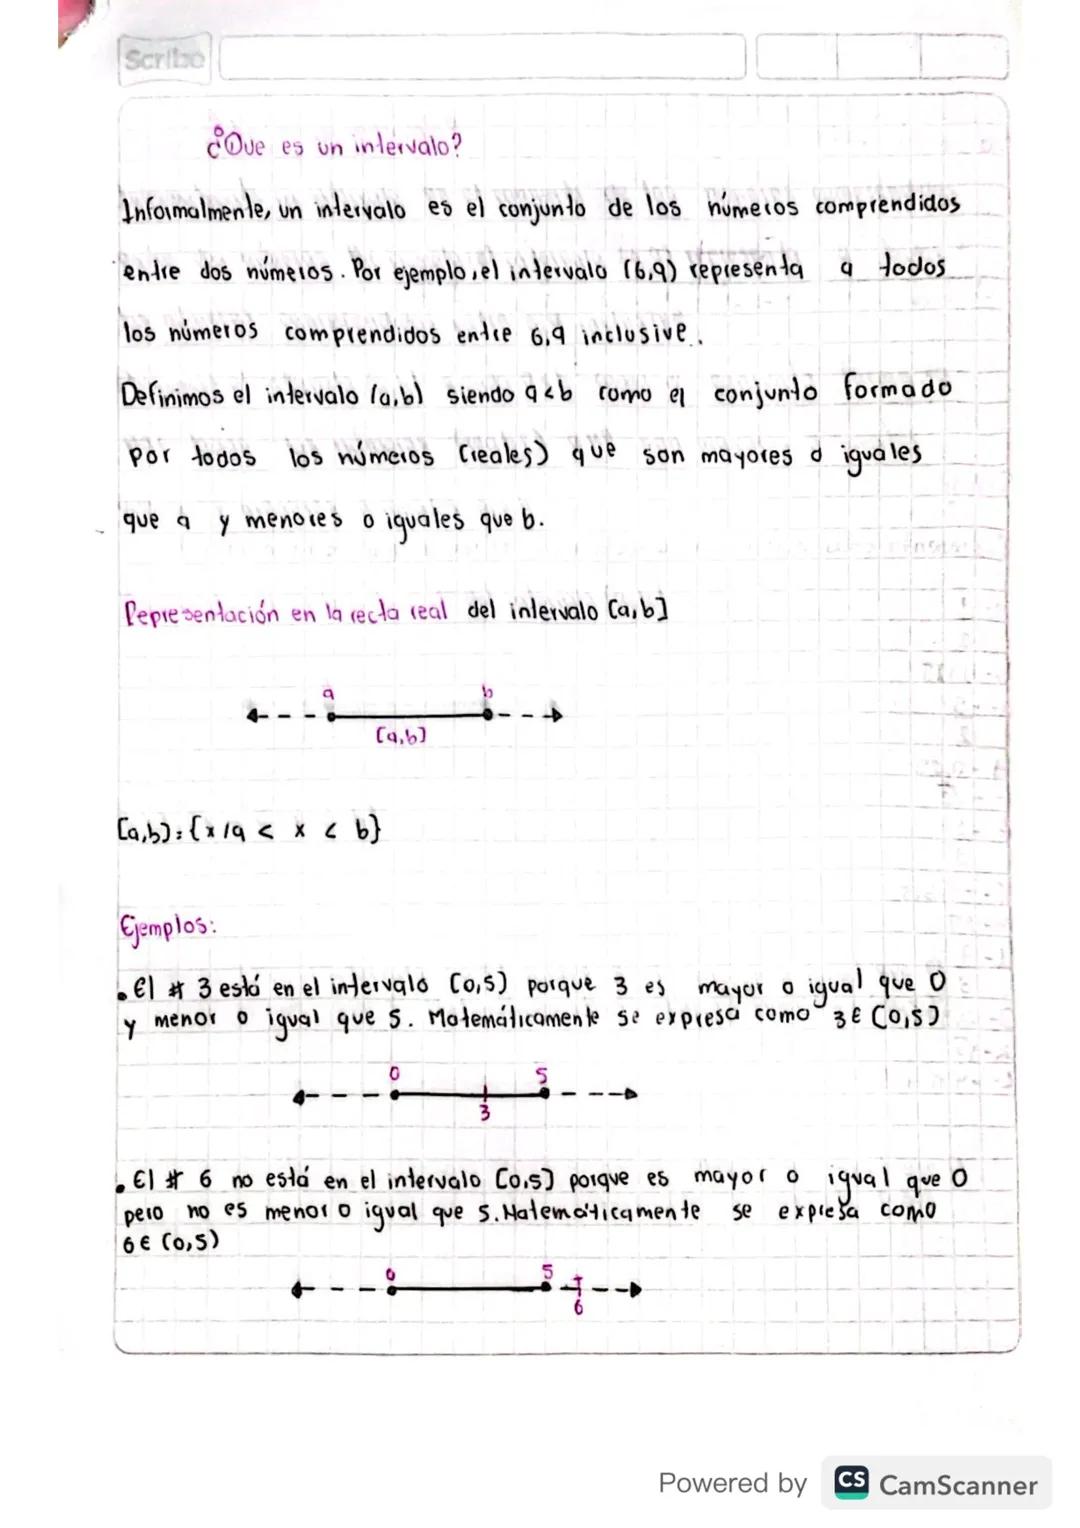 Scribe
¿Que es un intérvalo?
Informalmente, un intervalo es el conjunto de los números comprendidos
entre dos números. Por ejemplo, el intervalo (6,9) representa a todos
los números comprendidos entre 6,9 inclusive.
Definimos el intervalo (a,b) siendo a<b como el conjunto formado
por todos los números (reales) que son mayores o iguales
que a y menores o iguales que b.
Representación en la recta real del intervalo [a,b]
a b
[a,b]
[a,b]={x/a < x < b}
Ejemplos:
• El # 3 está en el intervalo [0,5) porque 3 es mayor o igual que 0
y menor o igual que 5. Matemáticamente se expresa como 3∈[0,5]
0 5
3
• El # 6 no está en el intervalo [0,5] porque es mayor o igual que 0
pero no es menor o igual que 5. Matemáticamente se expresa como
6∈ (0,5)
0 5
6
Powered by CS CamScanner